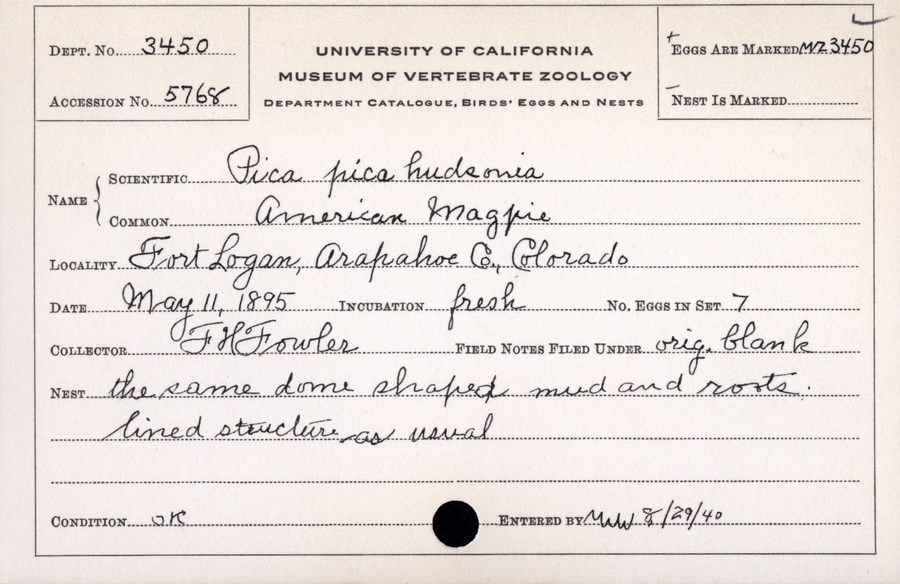 Dept. No. 3450
Accession No. 5768
UNIVERSITY OF CALIFORNIA
MUSEUM OF VERTEBRATE ZOOLOGY
Department Catalogue, Birds' Eggs and Nests
+ Eggs Are Marked MVZ3450
- Nest Is Marked
Name { Scientific Pica pica hudsonia
Common American Magpie
Locality Fort Logan, Arapahoe Co., Colorado
Date May 11, 1895 Incubation fresh No. Eggs in Set 7
Collector F H Fowler Field Notes Filed Under orig. blank
Nest the same dome shaped mud and roots.
lined structure as usual
Condition OK Entered by MW 8/29/40